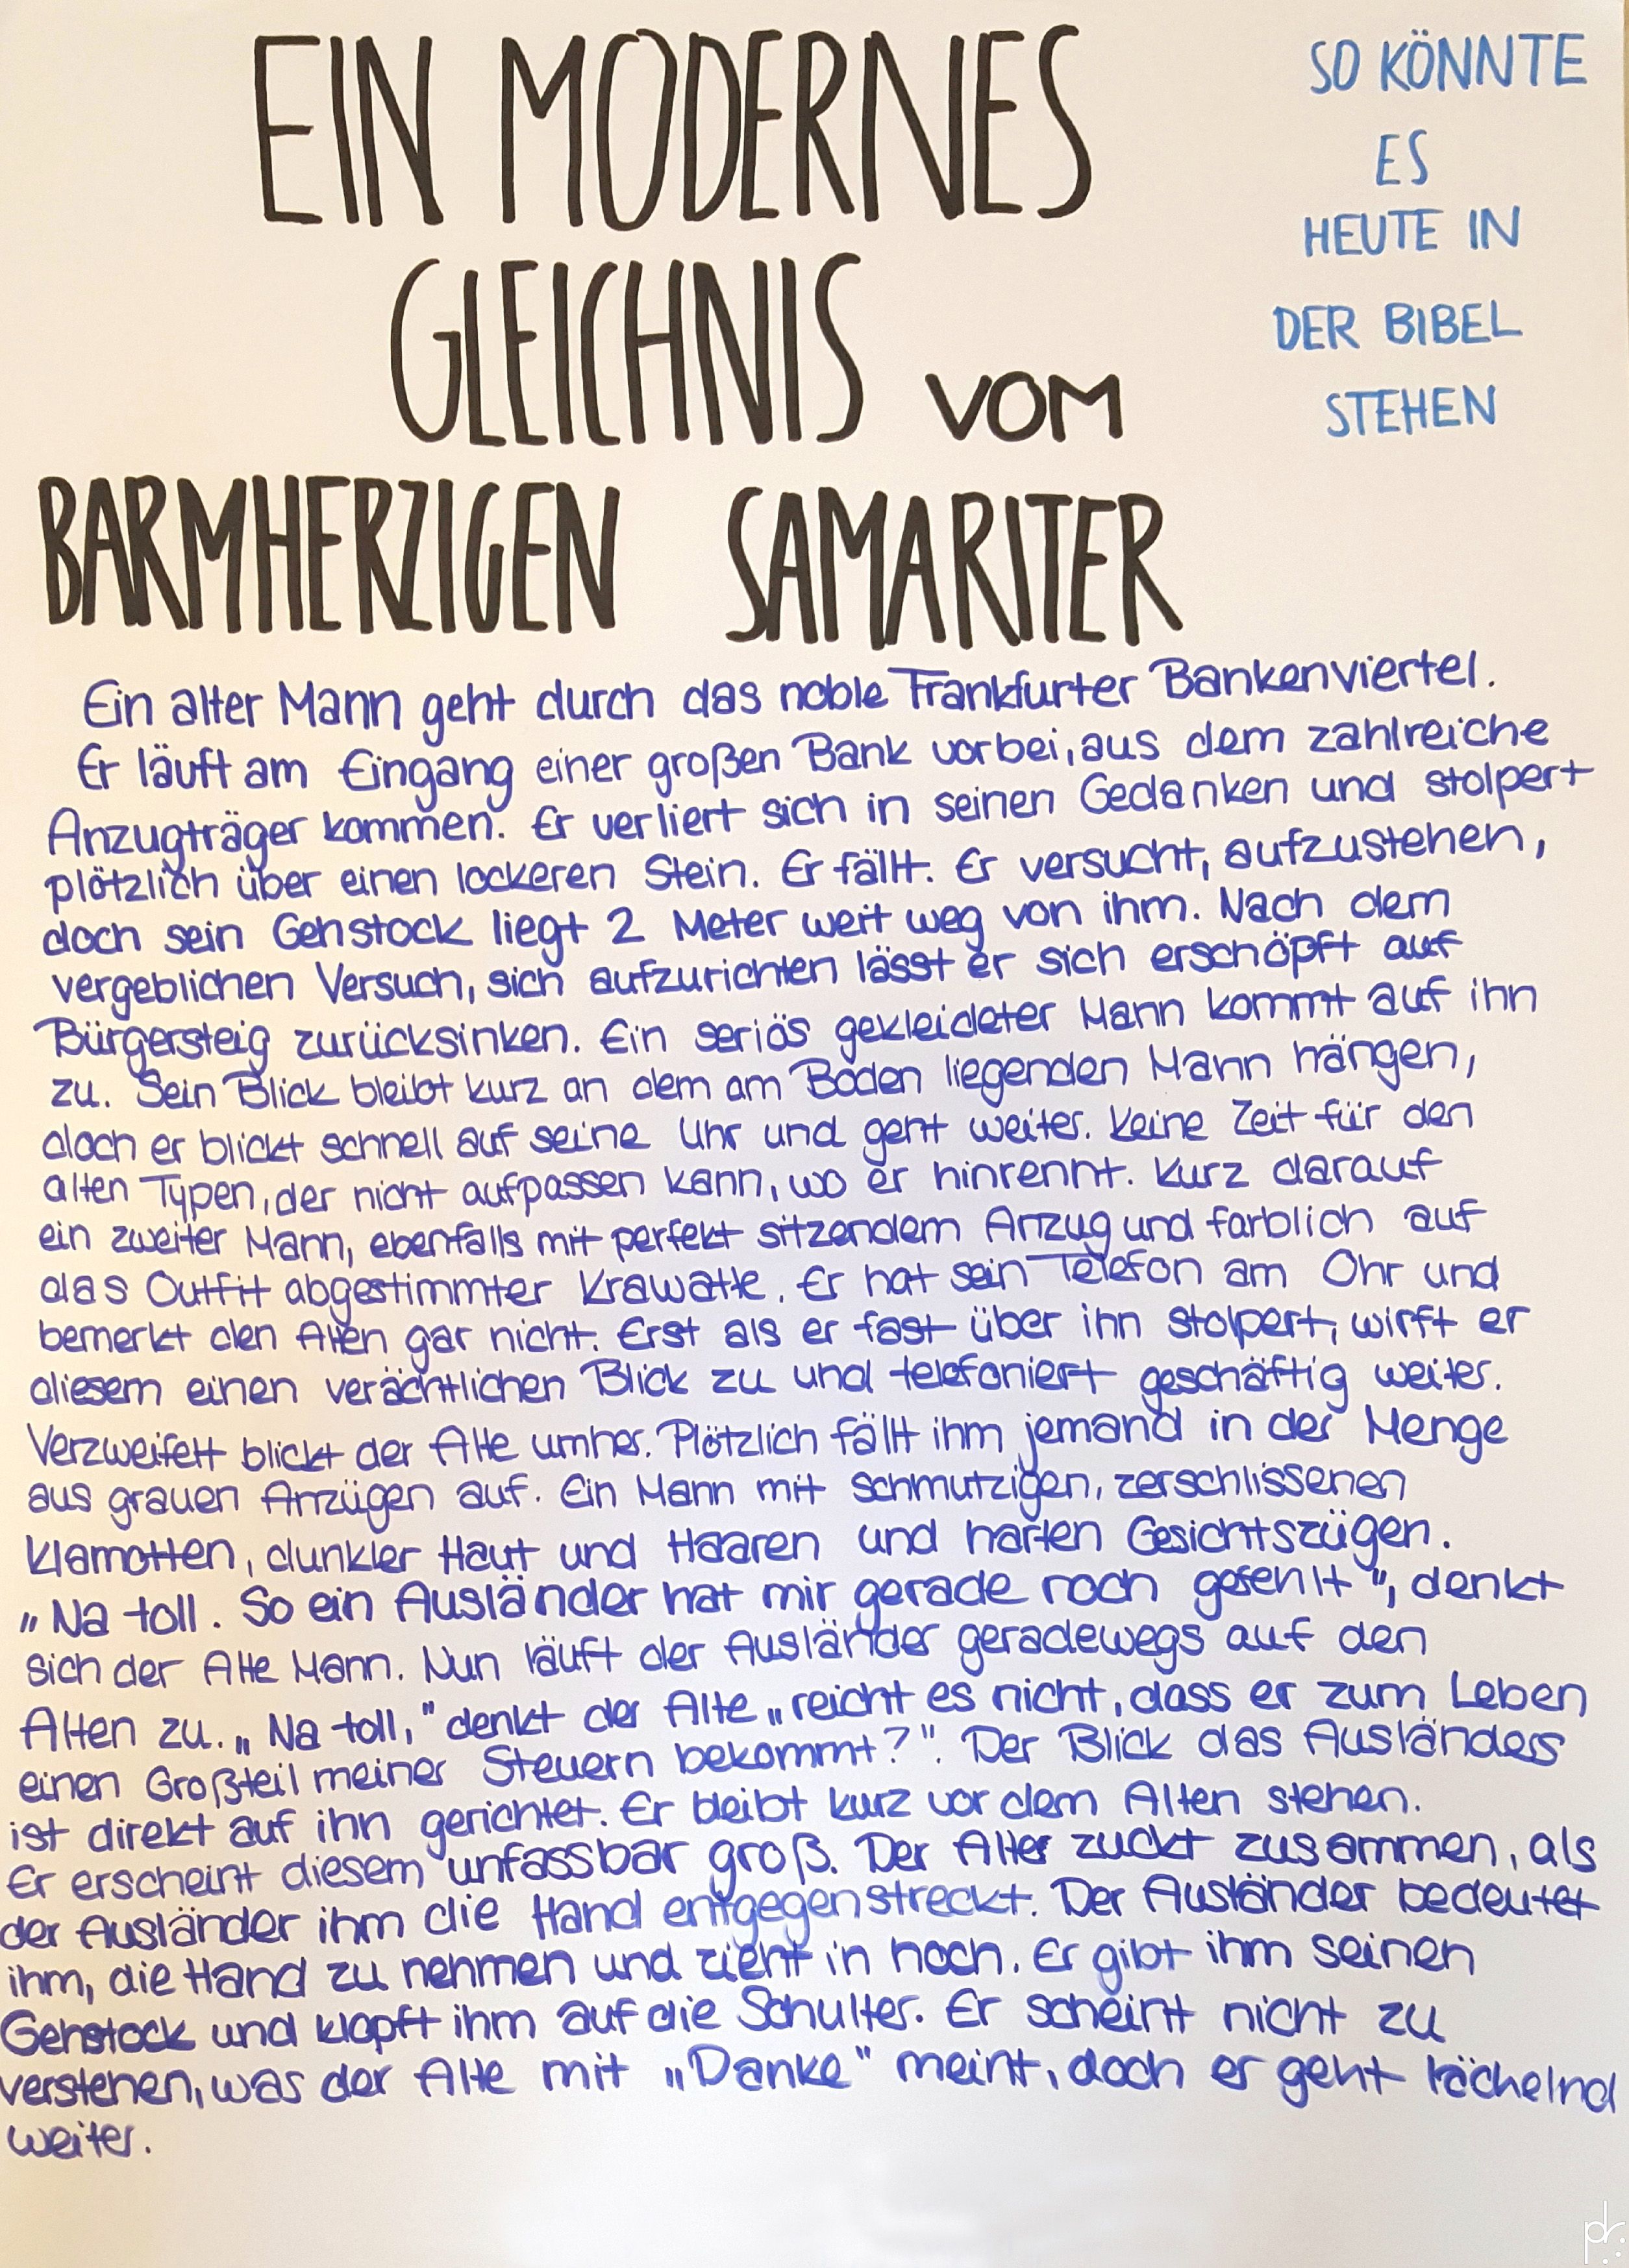 EIN MODERNES
GLEICHNIS VOM
BARMHERZIGEN SAMARITER
SO KÖNNTE
ES
HEUTE IN
DER BIBEL
STEHEN
Ein alter Mann geht durch das noble Frankfurter Bankenviertel.
Er läuft am Eingang einer großen Bank vorbei, aus dem zahlreiche
Anzugträger kommen. Er verliert sich in seinen Gedanken und stolpert
plötzlich über einen lockeren Stein. Er fällt. Er versucht, aufzustehen,
doch sein Gehstock liegt 2 Meter weit weg von ihm. Nach dem
vergeblichen Versuch, sich aufzurichten lässt er sich erschöpft auf
Bürgersteig zurücksinken. Ein seriös gekleideter Mann kommt auf ihn
zu. Sein Blick bleibt kurz an dem am Boden liegenden Mann hängen,
doch er blickt schnell auf seine Uhr und geht weiter. Keine Zeit für den
alten Typen, der nicht aufpassen kann, wo er hinrennt. Kurz darauf
ein zweiter Mann, ebenfalls mit perfekt sitzendem Anzug und farblich auf
das Outfit abgestimmter Krawatte. Er hat sein Telefon am Ohr und
bemerkt den Alten gar nicht. Erst als er fast über ihn stolpert, wirft er
diesem einen verächtlichen Blick zu und telefoniert geschäftig weiter.
Verzweifelt blickt der Alte umher. Plötzlich fällt ihm jemand in der Menge
aus grauen Anzügen auf. Ein Mann mit schmutzigen, zerschlissenen
Klamotten, dunkler Haut und Haaren und harten Gesichtszügen.
„Na toll. So ein Ausländer hat mir gerade noch gefehlt", denkt
sich der Alte Mann. Nun läuft der Ausländer geradewegs auf den
Alten zu. „Na toll," denkt der Alte „reicht es nicht, dass er zum Leben
einen Großteil meiner Steuern bekommt?". Der Blick das Ausländers
ist direkt auf ihn gerichtet. Er bleibt kurz vor dem Alten stehen.
Er erscheint diesem unfassbar groß. Der Alter zuckt zusammen, als
der Ausländer ihm die Hand entgegenstreckt. Der Ausländer bedeutet
ihm, die Hand zu nehmen und zieht in hoch. Er gibt ihm seinen
Gehstock und klopft ihm auf die Schulter. Er scheint nicht zu
verstehen, was der Alte mit „Danke" meint, doch er geht lächelnd
weiter.
pr